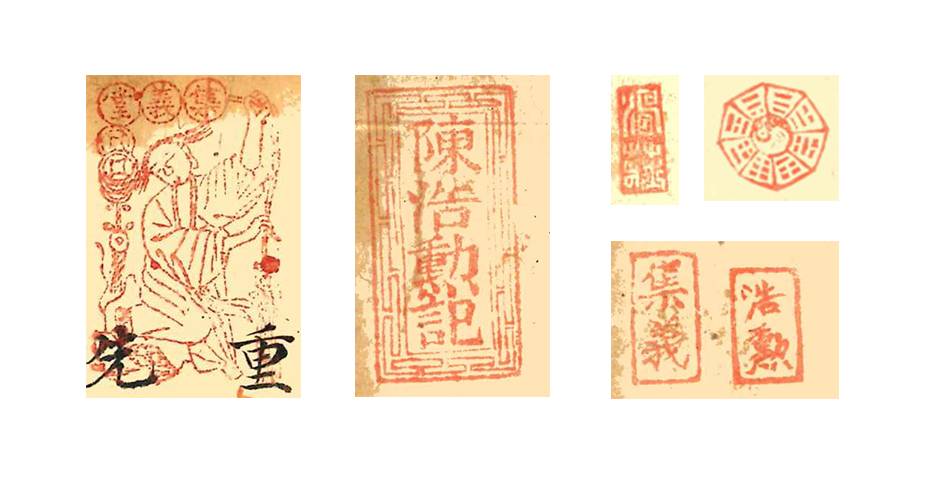 集義堂
重先
陳浩勳記
集義
浩勳